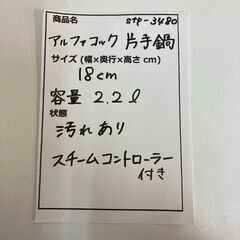 商品名 stp-3480
アルファコック 片手鍋
サイズ (幅×奥行×高さ cm)
18cm
容量 2.2ℓ
状態
汚れあり
スチームコントローラー
付き